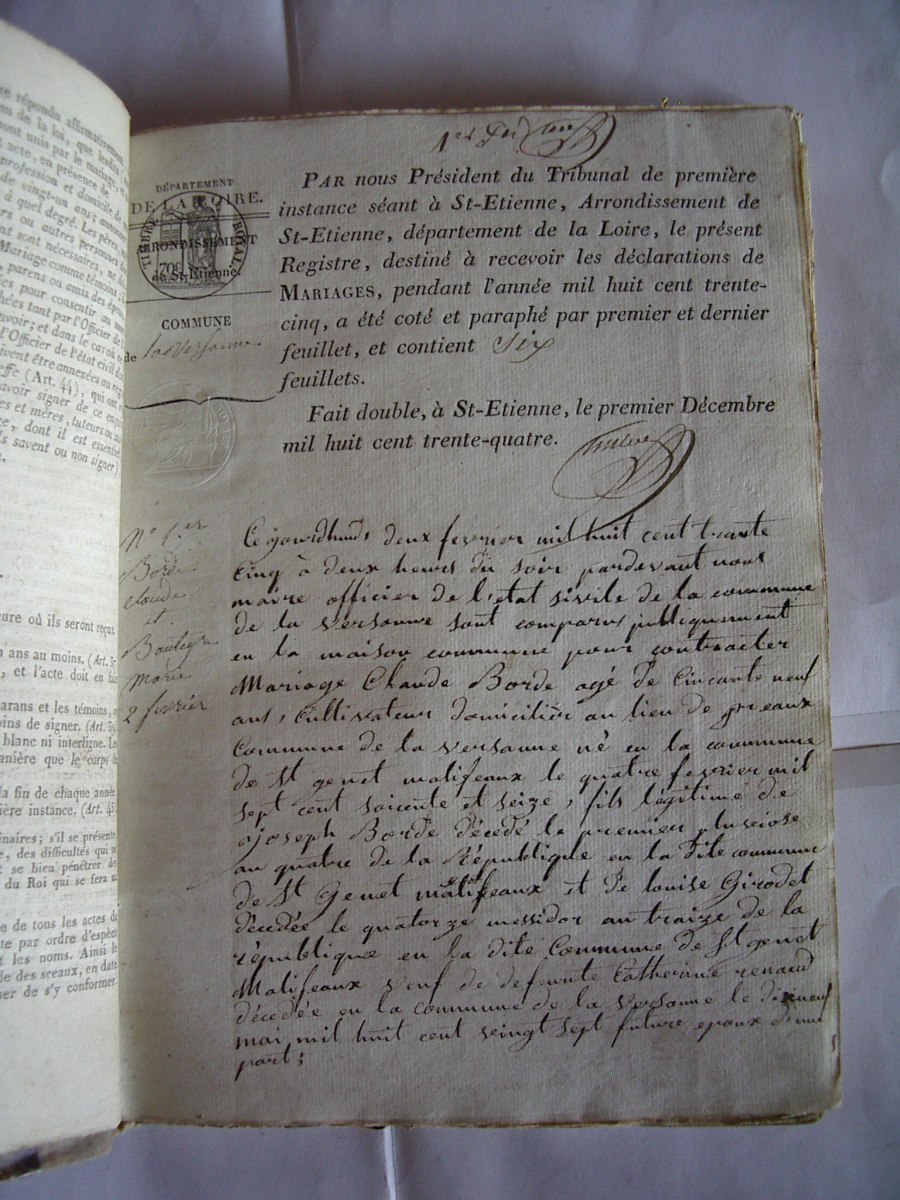 ne répondu affirmativement
om de la loi, que lesdits
sont unis par le mariage, et
acte, en présence de
profession et domicile de
de vingt-un ans ; annoncer
à quel degré. Les pères,
urs ou autres personnes
ent sont nécessaires, ne
Mariage comme témoins ;
parens ou amis des époux
sées pour consentir au
hées tant par l'Officier de l'
avoir ; et dans le cas où ce
l'Officier de l'état civil doit
ivent être annexées au reg
effe (Art. 44), qui ont
avoir signer de ce enqui
es et mères, tuteurs ou au
ge, dont il est essentiel
ils savent ou non signer)
eure où ils seront reçus.
n ans au moins. (Art. 37
, et l'acte doit en fai
arans et les témoins, o
oins de signer. (Art. 39
blanc ni interligne. Le
anière que le corps d
la fin de chaque année
ière instance. (Art. 43
naires ; s'il se présente
, des difficultés qui n
t se bien pénétrer de
du Roi qui se fera u
e de tous les actes de
te par ordre d'espèce
t les noms. Ainsi le
de des sceaux, en date
ser de s'y conformer.
1er
DÉPARTEMENT
DE LA LOIRE.
TIMBRE ROYAL
ARRONDISSEMENT
70c
de St-Etienne.
COMMUNE
de la Versanne
PAR nous Président du Tribunal de première
instance séant à St-Etienne, Arrondissement de
St-Etienne, département de la Loire, le présent
Registre, destiné à recevoir les déclarations de
MARIAGES, pendant l'année mil huit cent trente-
cinq, a été coté et paraphé par premier et dernier
feuillet, et contient Six
feuillets.
Fait double, à St-Etienne, le premier Décembre
mil huit cent trente-quatre.
No 1er
Borde
claude
et
marie
2 fevrier
Cejourdhuid deux fevrier mil huit cent trante
Cinq à deux heurs du soir pardevant nous
maire officier de l'état sivile de la commune
de la versanne sont comparus publiquement
en la maison commune pour contracter
Mariage Claude Borde agé de Cincante neuf
ans, Cultivateur domicilié au lieu de preaux
Commune de la versanne né en la commune
de St genet malifeaux le quatre fevrier mil
sept cent soicente et seize, fils légitime de
joseph Borde décédé le premier plusiose
an quatre de la République en la dite commune
de St Genet malifeaux et de louise Girodet
décédée le quatorze messidor an traize de la
république en la dite Commune de St genet
Malifeaux veuf de defeunte Catherine renaud
décédée en la commune de la versanne le dixneuf
mai mil huit cent vingt sept future epoux d'une
part ;